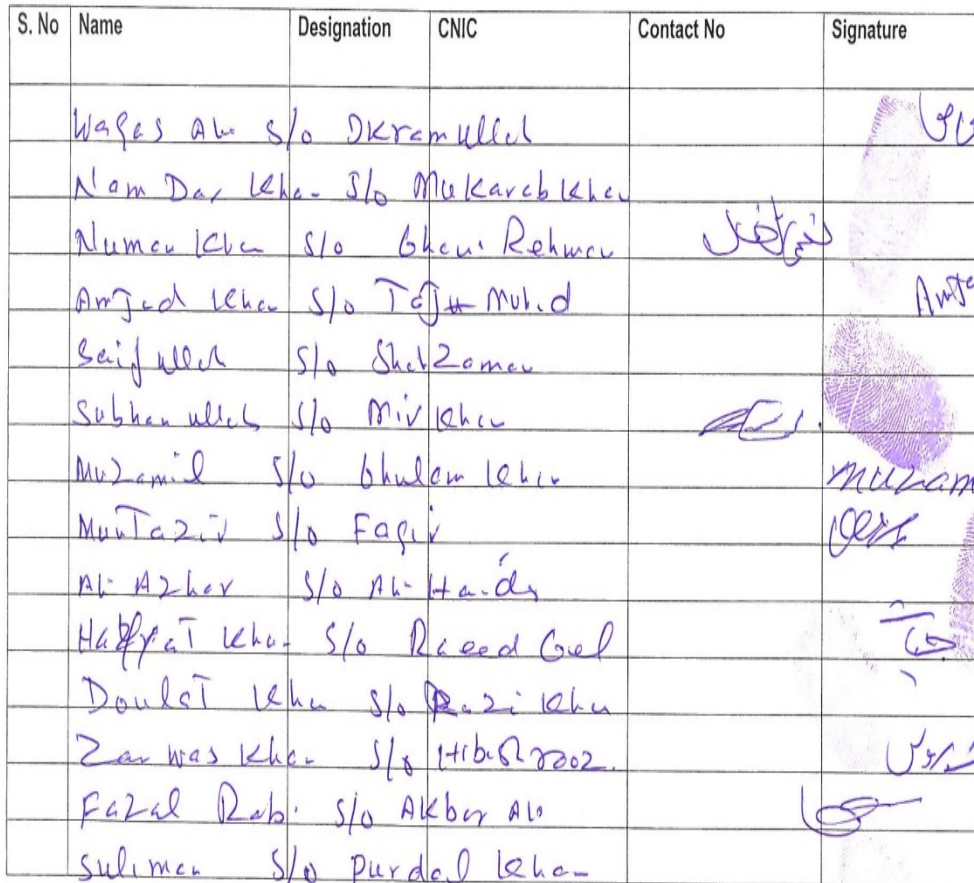 S. No Name Designation CNIC Contact No Signature
Waqas Ali S/o Ikramullah
Nam Dar Khan S/o Mukarab Khan
Numan Khan S/o Ghani Rehman
Amjad Khan S/o Taj Muh.d Amja
Saif ullah S/o Shah Zaman
Subhan ullah S/o Mir Khan
Muzamil S/o Ghulam Khan Muzam
Muntazir S/o Faqir
Ali Azhar S/o Ali Haider
Hayat Khan S/o Raeed Gul
Doulat Khan S/o Razi Khan
Zar was Khan S/o
Fazal Rabi S/o Akbar Ali
Suliman S/o Purdal Khan